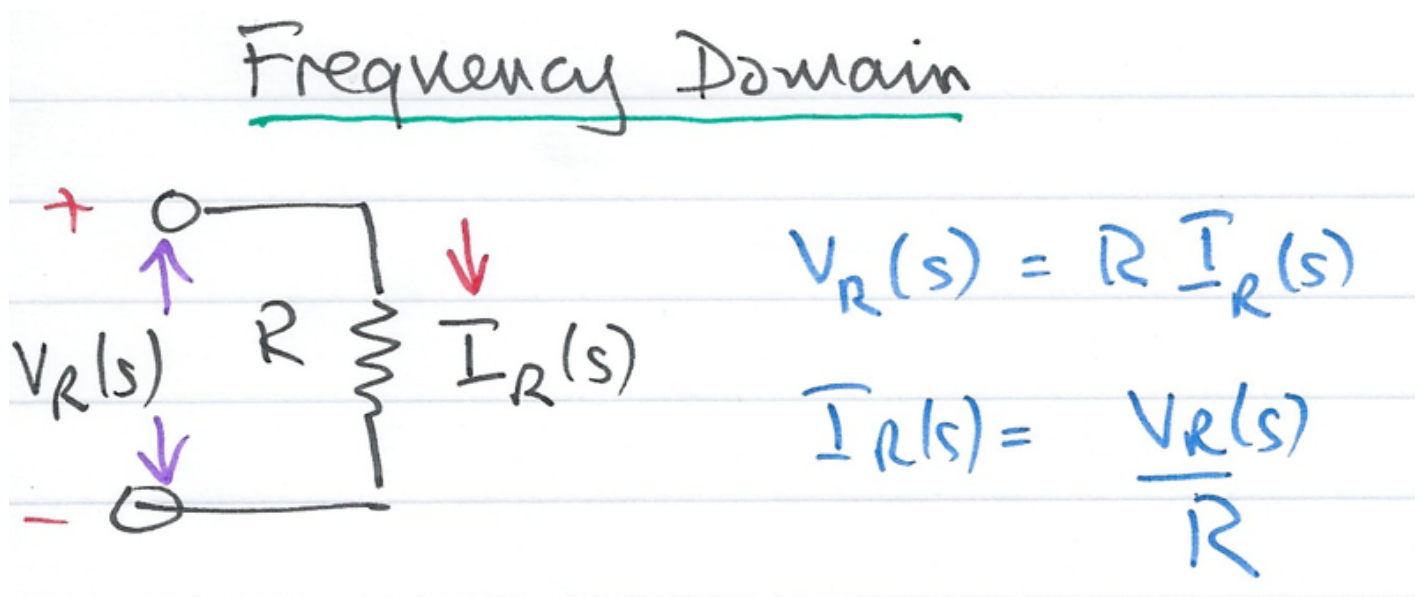 Frequency Domain
+
V_R(s) = R I_R(s)
R
V_R(s)
I_R(s)
I_R(s) = V_R(s) / R
-